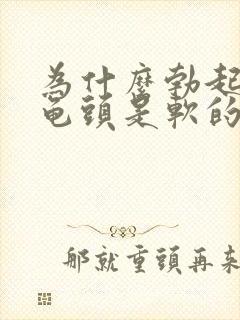 為什麼勃起
龟頭是軟的
那就重頭再來